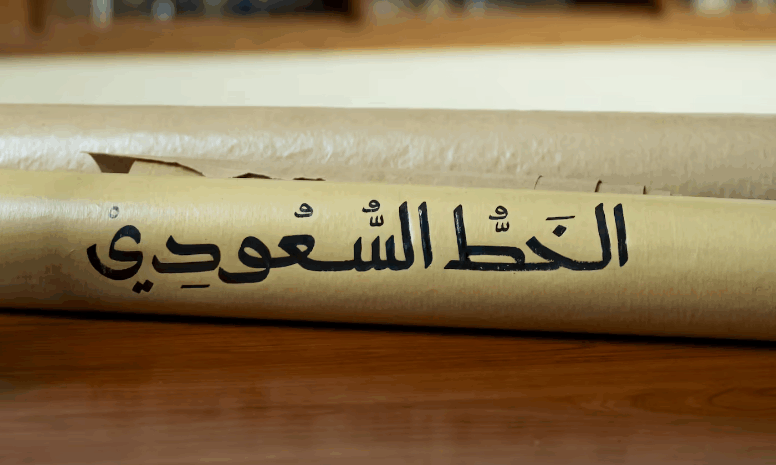 الخَطُّ السُّعُودِيْ